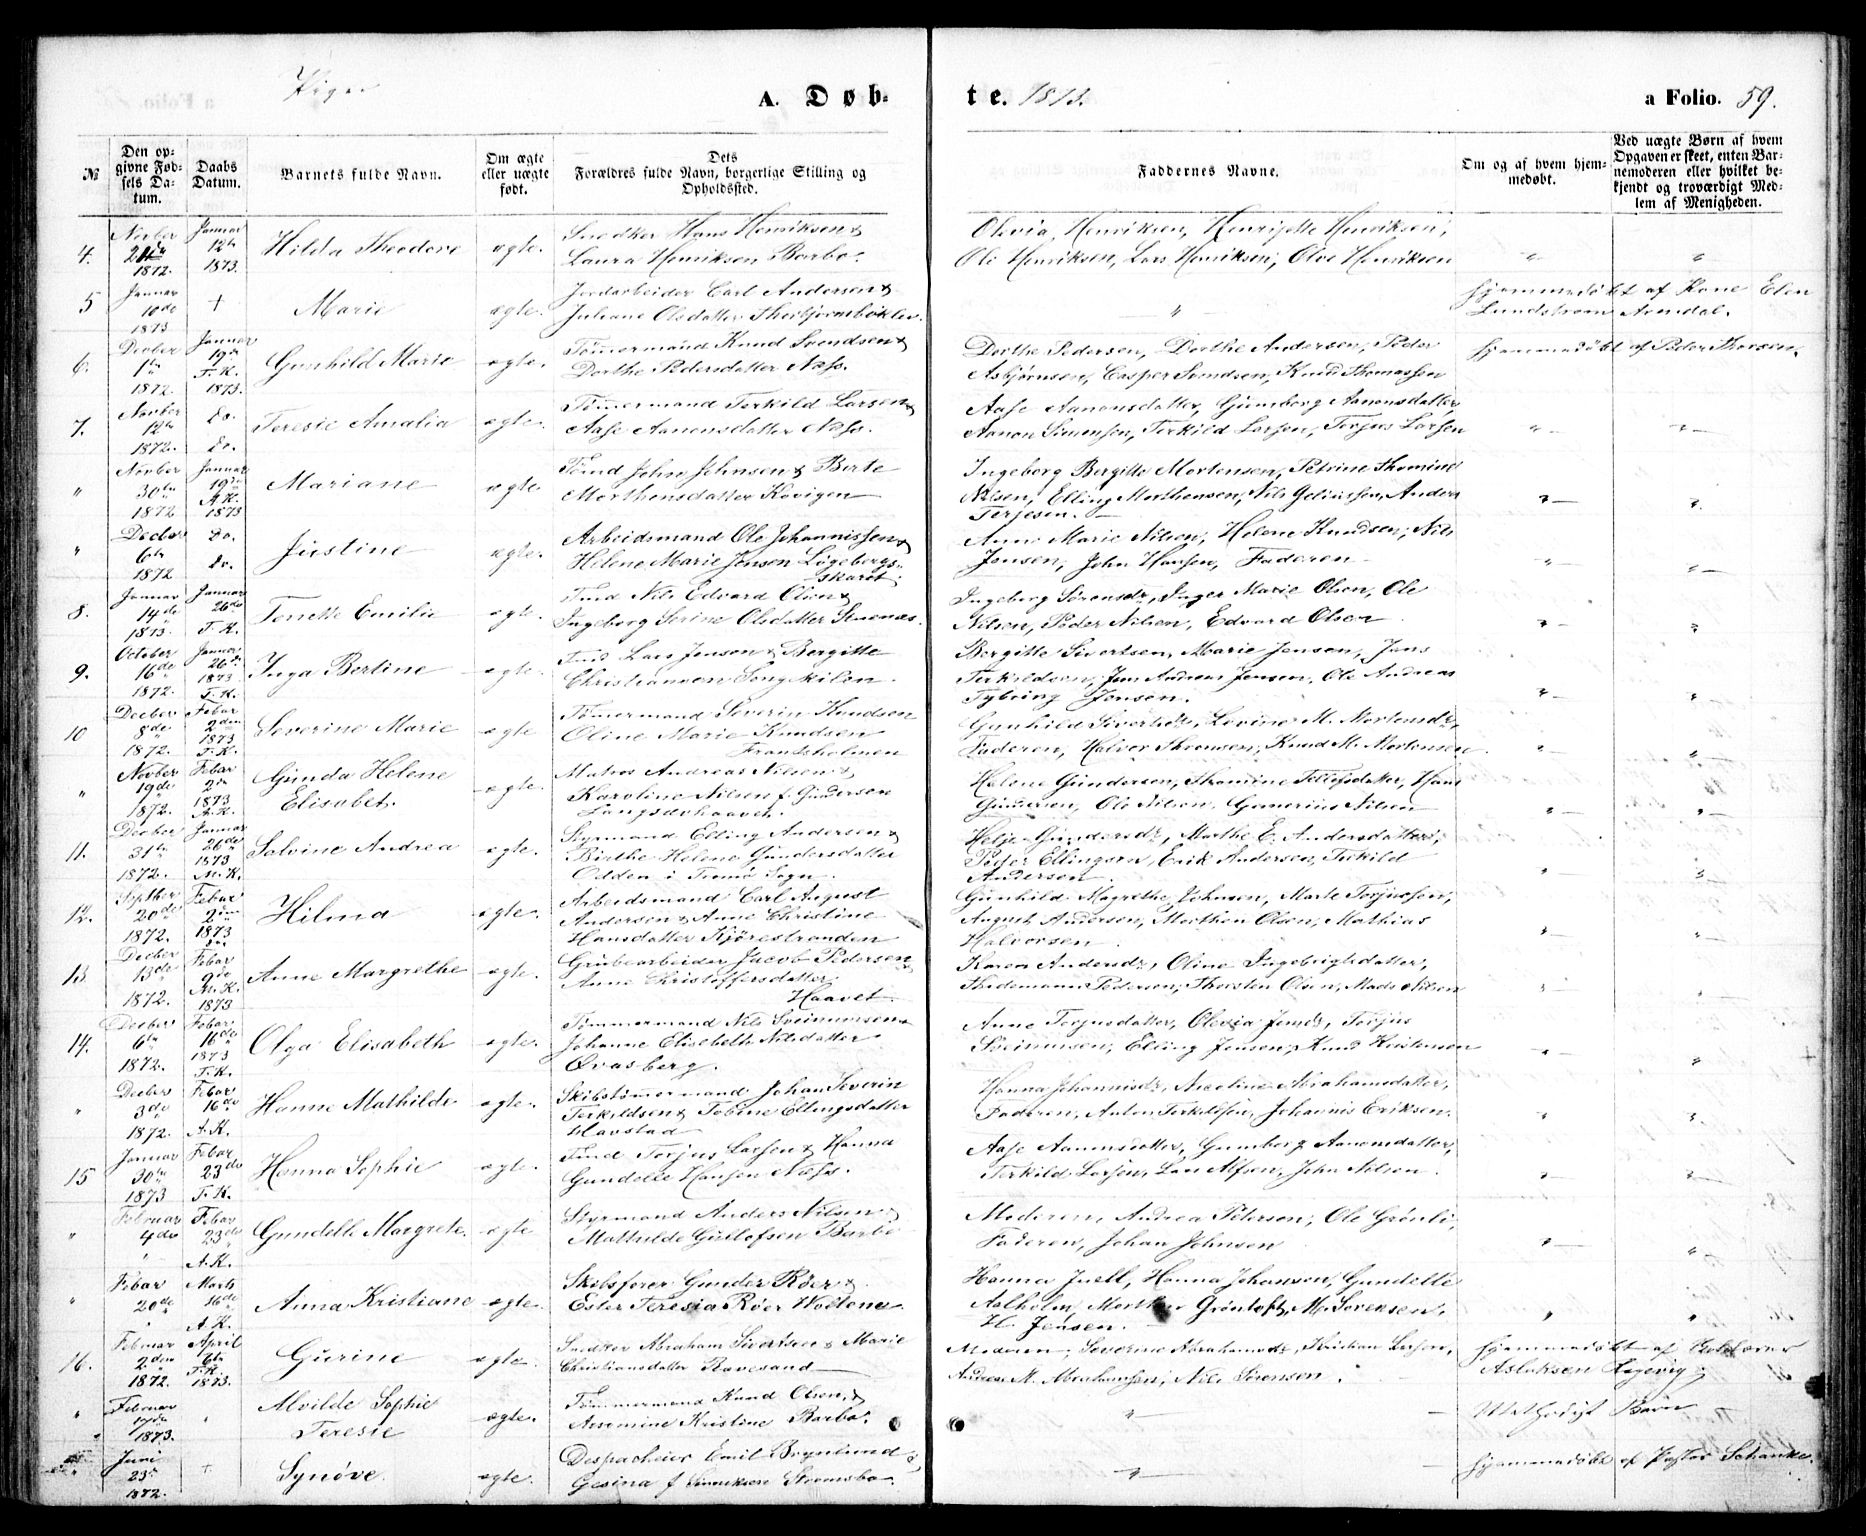 Piger
A. Døb-
te. 1873.
a Folio. 59.
№
Den op-
givne Fød-
sels Da-
tum.
Daabs
Datum.
Barnets fulde Navn.
Om ægte
eller uægte
født.
Dets
Forældres fulde Navn, borgerlige Stilling og
Opholdssted.
Faddernes Navne.
Om og af hvem hjem-
medøbt.
Ved uægte Børn af hvem
Opgaven er skeet, enten Bar-
nemoderen eller hvilket be-
kjendt og troværdigt Med-
lem af Menigheden.
4. Novber 1872. Januar 12te 1873. Hilda Theodore ægte. Snedker Hans Henriksen &
Laura Henriksen Barbo.
Olivia Henriksen, Henrijette Henriksen,
Ole Henriksen, Lars Henriksen, Olve Henriksen
5 Januar 10de 1873 + Marie ægte. Jordarbeider Carl Andersen &
Juliane Olsdatter
" hjemmedøbt af Kone Elen
Lundstrøm Arendal.
6. Decber 1te 1872. Januar 19de T.K. 1873. Gunhild Marie ægte. Tømermand Knud Svendsen &
Dorthe Pedersdatter Næss.
Dorthe Pedersen, Dorthe Andersen, Peder
Asbjørnsen, Casper Svendsen, Knud Thomassen
hjemmedøbt af Peder Thorsen.
7. Novber 12te 1872. do. do. Teresie Amalia ægte. Tømermand Terkild Larsen &
Aase Aanonsdatter Næss.
Aase Aanonsdatter, Gunborg Aanonsdatter,
Aanon Simonsen, Terkild Larsen, Terjus Larsen
" Novber 30te 1872 Januar 19de A.K. 1873 Mariane ægte. Tømd John Johnsen & Berte
Morthensdatter Kovigen
Ingeborg Bergitte Mortensen, Petrine Thomine
Nilsen, Elling Morthensen, Nils Anders
Terjesen.
" Decber 6te 1872 do. do. Justine ægte. Arbeidsmand Ole Johannissen &
Helene Marie Jensen Løgebergs-
skaret.
Anne Marie Nilsen, Helene Knudsen, Nils
Jensen, John Hansen, Faderen
8. Januar 14de 1873. Januar 26de T.K. Tonette Emilie ægte. Tmd Nils Edvard Olsen &
Ingeborg Serine Olsdatter Stuenes.
Ingeborg Sørensdr, Inger Marie Olsen, Ole
Nilsen, Peder Nilsen, Edvard Olsen
9. October 16de 1872. Januar 26de 1873 T.K. Inga Bertine ægte. Tmd Lars Jensen & Bergitte
Christiansen Songskilen.
Bergitte Sivertsen, Marie Jensen, Jens
Terkildsen, Jens Andreas Jensen, Ole Andreas
Tybring Jensen.
10 Decber 8de 1872. Febar 2den 1873 T.K. Severine Marie ægte Tømermand Severin Knudsen
Oline Marie Knudsen
Frantsholmen
Gunhild Sivertsdr, Lovine M. Mortensdr,
Faderen, Halvor Knud M. Mortensen
" Novber 19de 1872. Febar 2den 1873 A.K. Gunda Helene
Elisabet. ægte. Matros Andreas Nilsen &
Karoline Nilsen f. Gundersen
Langsævhaaven.
Helene Gundersen, Thomine Tellefsdatter, Hans
Gundersen, Ole Nilsen, Gunerius Nilsen
11. Decber 31te 1872. Januar 26de 1873 M.K. Salvine Andrea ægte. Styrmand Elling Andersen &
Birthe Helene Gundersdatter
Odden i Tromø Sogn.
Helje Gundersdr, Marthe E. Andersdatter,
Peder Ellingsen, Erik Andersen, Terkild
Andersen
12. Septber 20de 1872. Febar 2den 1873 do. Hilma ægte. Arbeidsmand Carl August
Andersen & Anne Christine
Hansdatter Kjørestranden
Gunhild Magrethe Johnsen, Marte Torjussen,
August Andersen, Morthen Olsen, Mathias
Halvorsen
13 Decber 13de 1872. Febar 9de M.K. 1873 Anne Margrethe ægte. Grubearbeider Jacob Pedersen
Anne Christoffersdatter
Haavet
Karen Andersdr, Oline Ingebrigtsdatter,
Thidemann Pedersen, Thorsten Olsen, Mads Nilsen
14. Decber 6te 1872. Febar 16de 1873 T.K. Olga Elisabeth ægte. Tømmermand Nils Sveinunsen &
Johanne Elisebeth Nilsdatter
Øvasberg.
Anne Torjusdatter, Olevia Jensdr, Torjus
Sveinunsen, Elling Jensen, Knud Kristensen
" Decber 3de 1872. Febar 16de A.K. Hanne Mathilde ægte. Skibstømmermand Johan Severin
Terkildsen & Tobine Ellingsdatter
Havstad
Hanna Johannisdr, Nicoline Abrahamsdatter,
Faderen, Anton Terkildsen, Johannis Eriksen.
15 Januar 30te 1873 Febar 23de T.K. Hanna Sophie ægte. Tmd Torjus Larsen & Hanna
Gundelle Hansen Næss.
Aase Aanonsdatter, Gunborg Aanonsdatter,
Terkild Larsen, Lars Alfsen, John Nilsen
" Februar 4de Febar 23de A.K. Gundelle Margrete. ægte Styrmand Anders Nilsen &
Mathilde Gullofsen Barbo
Moderen, Andrea Petersen, Ole Grønli,
Faderen, Johan Johnsen
" Febar 20de Marts 16de A.K. Anna Kristiane ægte. Skibsfører Gunder Røer &
Ester Teresia Røer
Hanna Juell, Hanna Johansen, Gundelle
Aalholm, Morthen Grønloft, M. Sørensen,
H. Jensen.
16. Februar 2den 1872. April 6te T.K. 1873. Gurine ægte. Snedker Abraham Sivertsen & Marie
Christiansdatter Ravesand
Moderen, Severine Abrahamsdr, Christian Larsen,
Andreas M. Abrahamsen, Nils Sørensen.
hjemmedøbt af
Aslaksen Hagevig
" Februar 1873. " Alvilde Sophie
Teresie ægte. Tømmermand Knud Olsen &
Kristine Barbo.
" Methodist Barn
" Juni 23de 1872. + Synøve ægte. Despacheur Emil Brynlund &
Gesina f. Strømsbo.
" hjemmedøbt af Pastor Schanke.